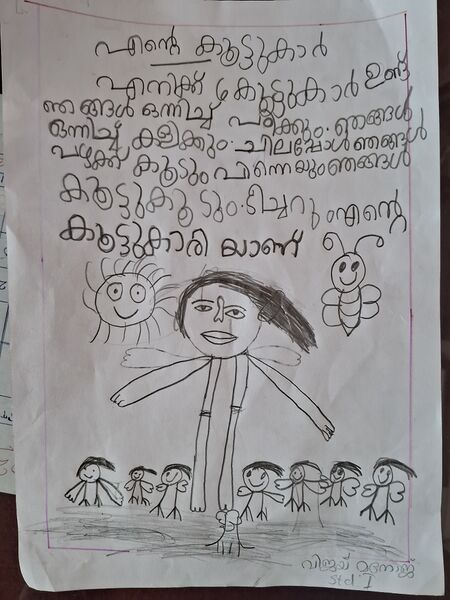 എന്റെ കൂട്ടുകാർ
എനിക്ക് 6 കൂട്ടുകാർ ഉണ്ട്
ഞങ്ങൾ ഒന്നിച്ച് പഠിക്കും. ഞങ്ങൾ
ഒന്നിച്ച് കളിക്കും. ചിലപ്പോൾ ഞങ്ങൾ
കൂടും പിന്നെയും ഞങ്ങൾ
കൂട്ടുകൂടും. ടീച്ചറും എന്റെ
കൂട്ടുകാരി യാണ്
വിജയ്
std I